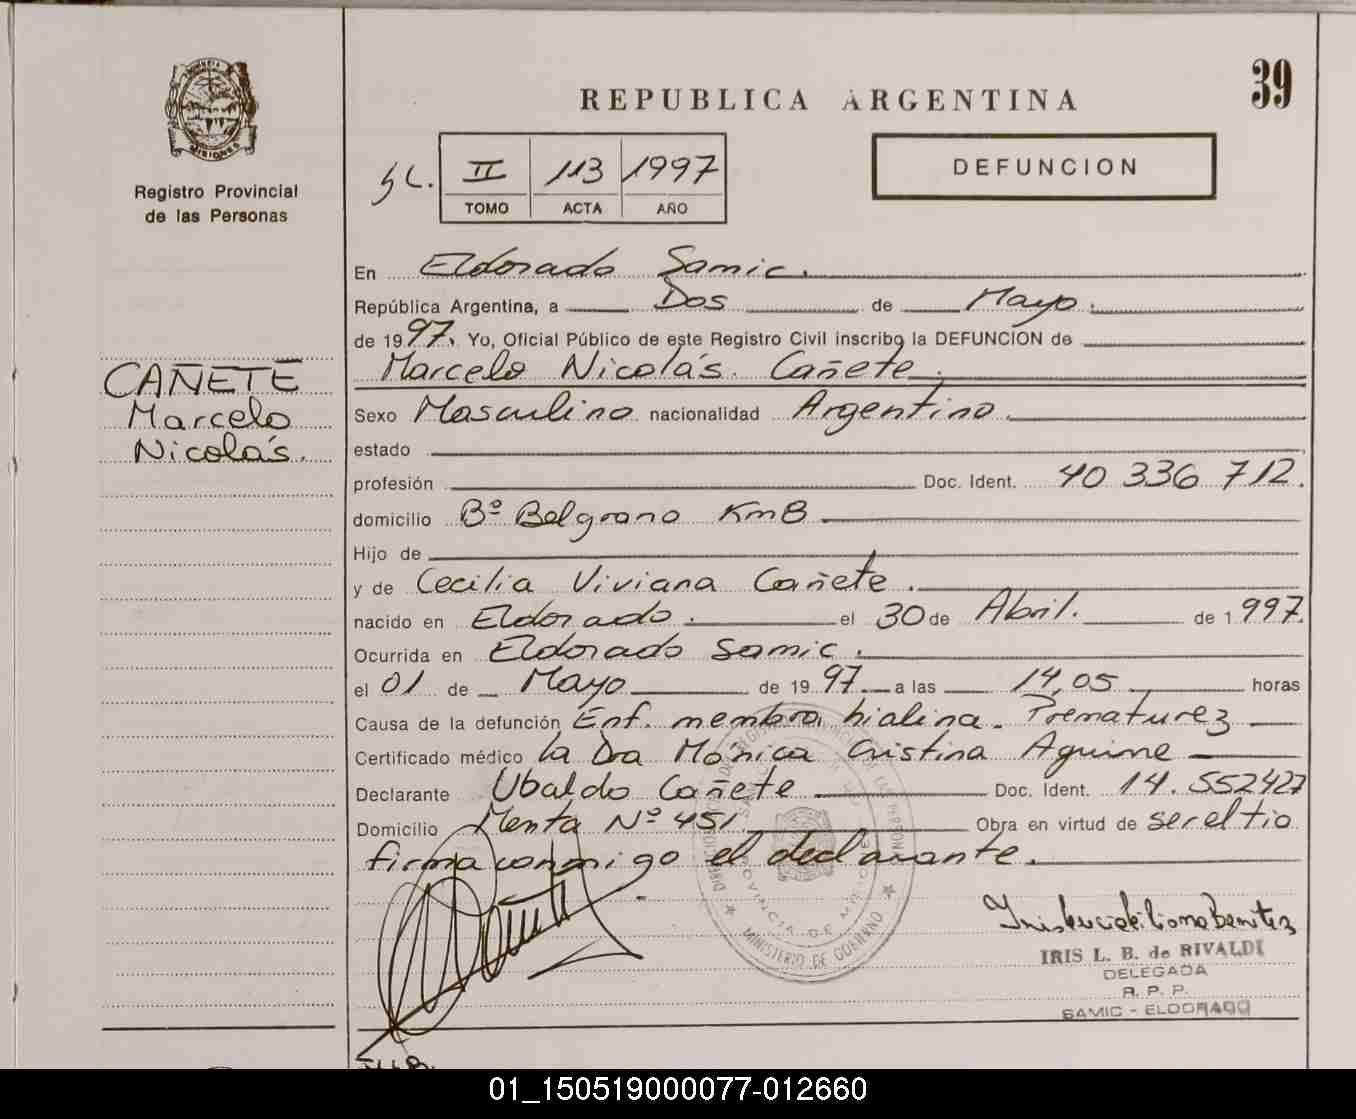 39
REPUBLICA ARGENTINA
DEFUNCION
MISIONES
Registro Provincial
de las Personas
II 113 1997
TOMO ACTA AÑO
CAÑETE
Marcelo
Nicolás.
En Eldorado Samic.
República Argentina, a Dos de Mayo.
de 1997. Yo, Oficial Público de este Registro Civil inscribo la DEFUNCION de
Marcelo Nicolás Cañete.
Sexo Masculino nacionalidad Argentino.
estado
profesión Doc. Ident. 40 336 712.
domicilio Bº Belgrano Km 8
Hijo de
y de Cecilia Viviana Cañete.
nacido en Eldorado. el 30 de Abril. de 1.997.
Ocurrida en Eldorado Samic.
el 01 de Mayo de 1997. a las 14,05 horas
Causa de la defunción Enf. membra hialina. Prematurez
Certificado médico la Dra Mónica Cristina Aguirre
Declarante Ubaldo Cañete Doc. Ident. 14.552427
Domicilio Menta Nº 451. Obra en virtud de ser el tio
firma conmigo el declarante.
PROVINCIA DE MISIONES
MINISTERIO DE GOBIERNO
IRIS L. B. de RIVALDI
DELEGADA
R. P. P.
SAMIC - ELDORADO
01_150519000077-012660